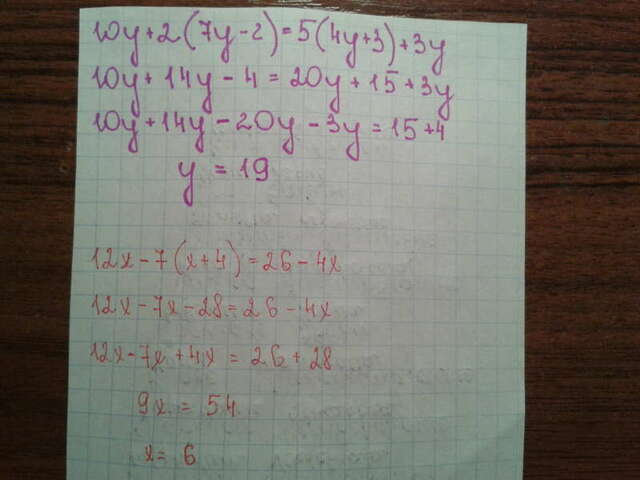 10y+2(7y-2)=5(4y+3)+3y
10y+14y-4=20y+15+3y
10y+14y-20y-3y=15+4
y=19
12x-7(x+4)=26-4x
12x-7x-28=26-4x
12x-7x+4x=26+28
9x=54
x=6